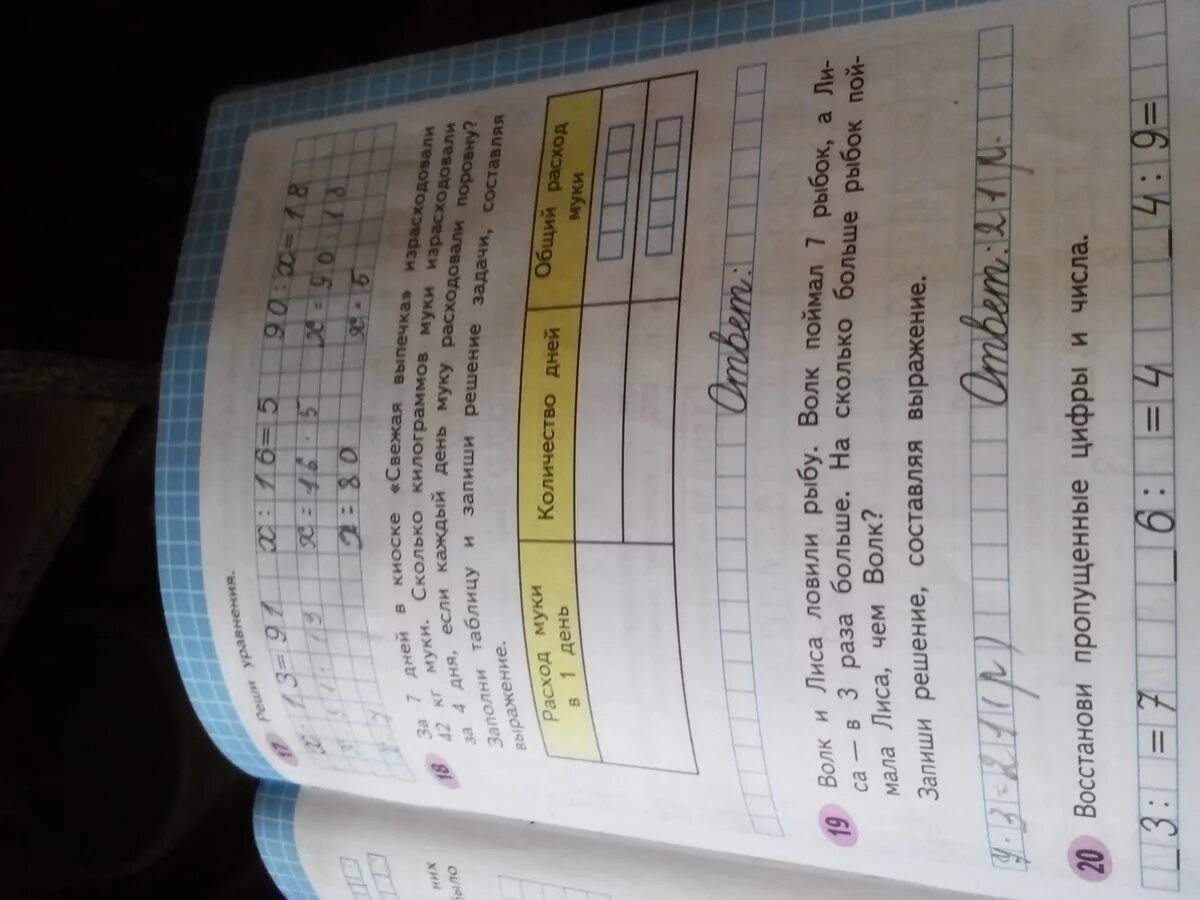 17 Реши уравнения.
x · 13=91 x : 16=5 90 : x=18
x = 16 · 5 x = 90 18
x = 80 x = 5
18 За 7 дней в киоске «Свежая выпечка» израсходовали
42 кг муки. Сколько килограммов муки израсходовали
за 4 дня, если каждый день муку расходовали поровну?
Заполни таблицу и запиши решение задачи, составляя
выражение.
Расход муки в 1 день Количество дней Общий расход муки
Ответ:
19 Волк и Лиса ловили рыбу. Волк поймал 7 рыбок, а Ли-
са — в 3 раза больше. На сколько больше рыбок пой-
мала Лиса, чем Волк?
Запиши решение, составляя выражение.
· 3=21(р) Ответ: 21 р.
20 Восстанови пропущенные цифры и числа.
_3: =7 _6: =4 _4:9=
них
было